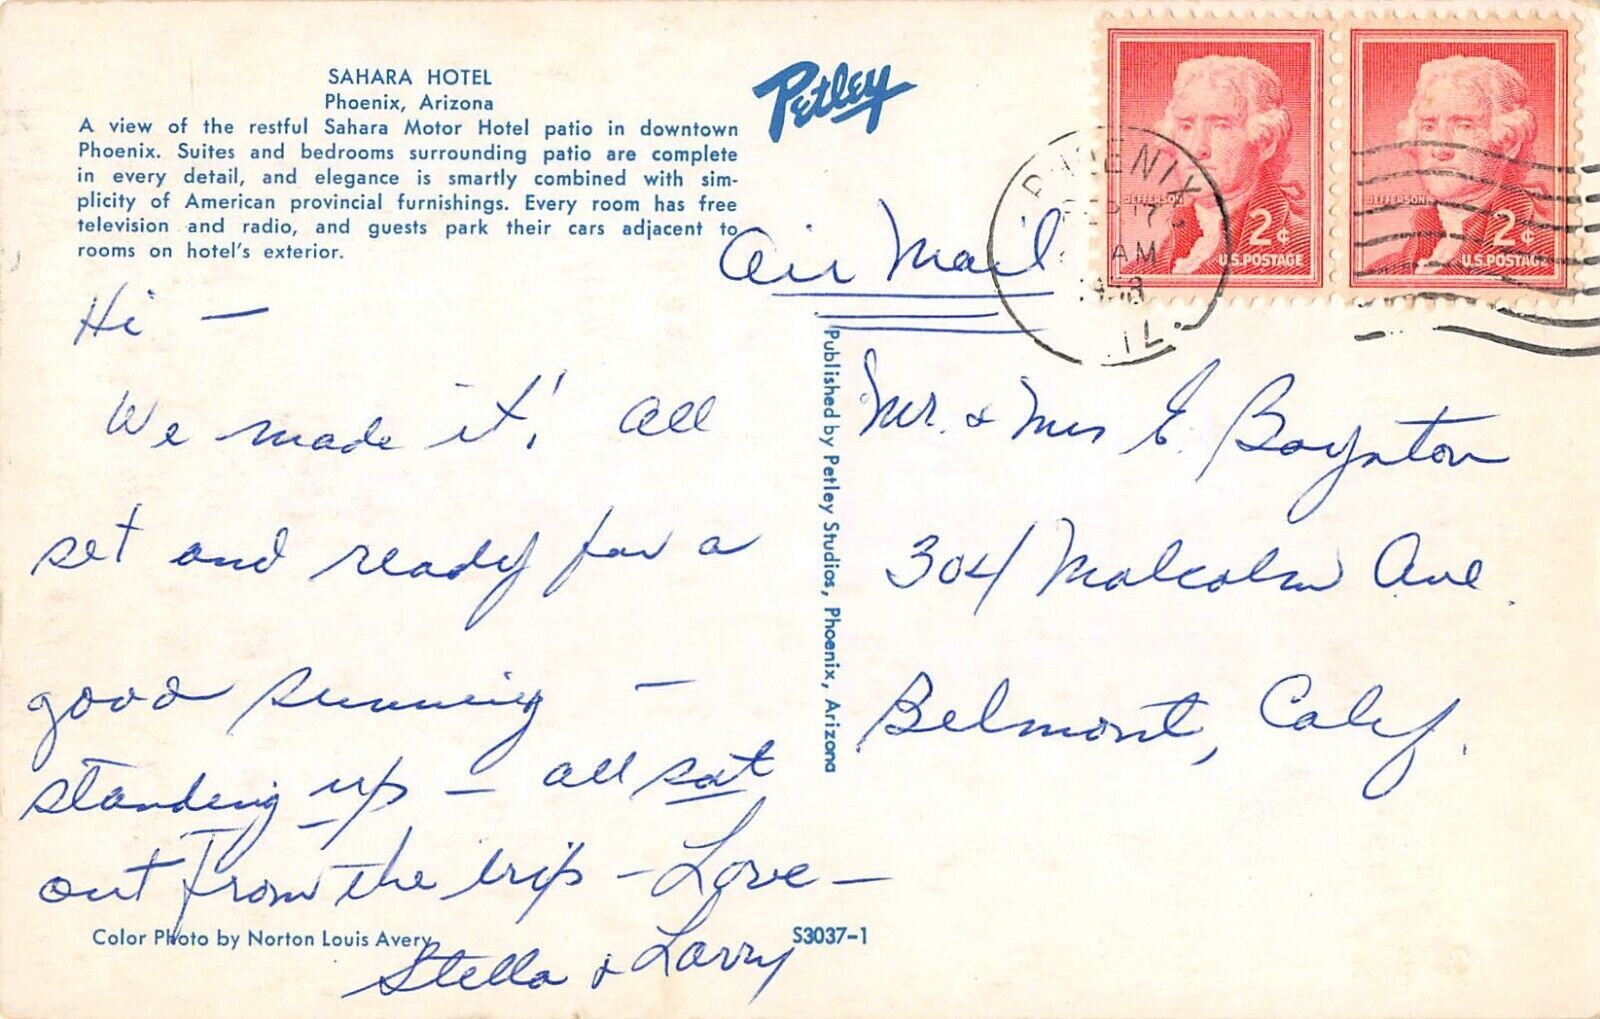 SAHARA HOTEL
Phoenix, Arizona
A view of the restful Sahara Motor Hotel patio in downtown
Phoenix. Suites and bedrooms surrounding patio are complete
in every detail, and elegance is smartly combined with sim-
plicity of American provincial furnishings. Every room has free
television and radio, and guests park their cars adjacent to
rooms on hotel's exterior.
Petley
PHOENIX
17
AM
1958
JEFFERSON
2¢
U.S. POSTAGE
JEFFERSON
2¢
U.S. POSTAGE
Air Mail
Hi —
We made it! All
set and ready for a
good running —
standing up — all sat
out from the trip — Love —
Stella & Larry
Published by Petley Studios, Phoenix, Arizona
Mr. & Mrs E. Boynton
304 Malcolm Ave.
Belmont, Calif.
Color Photo by Norton Louis Avery
S3037-1